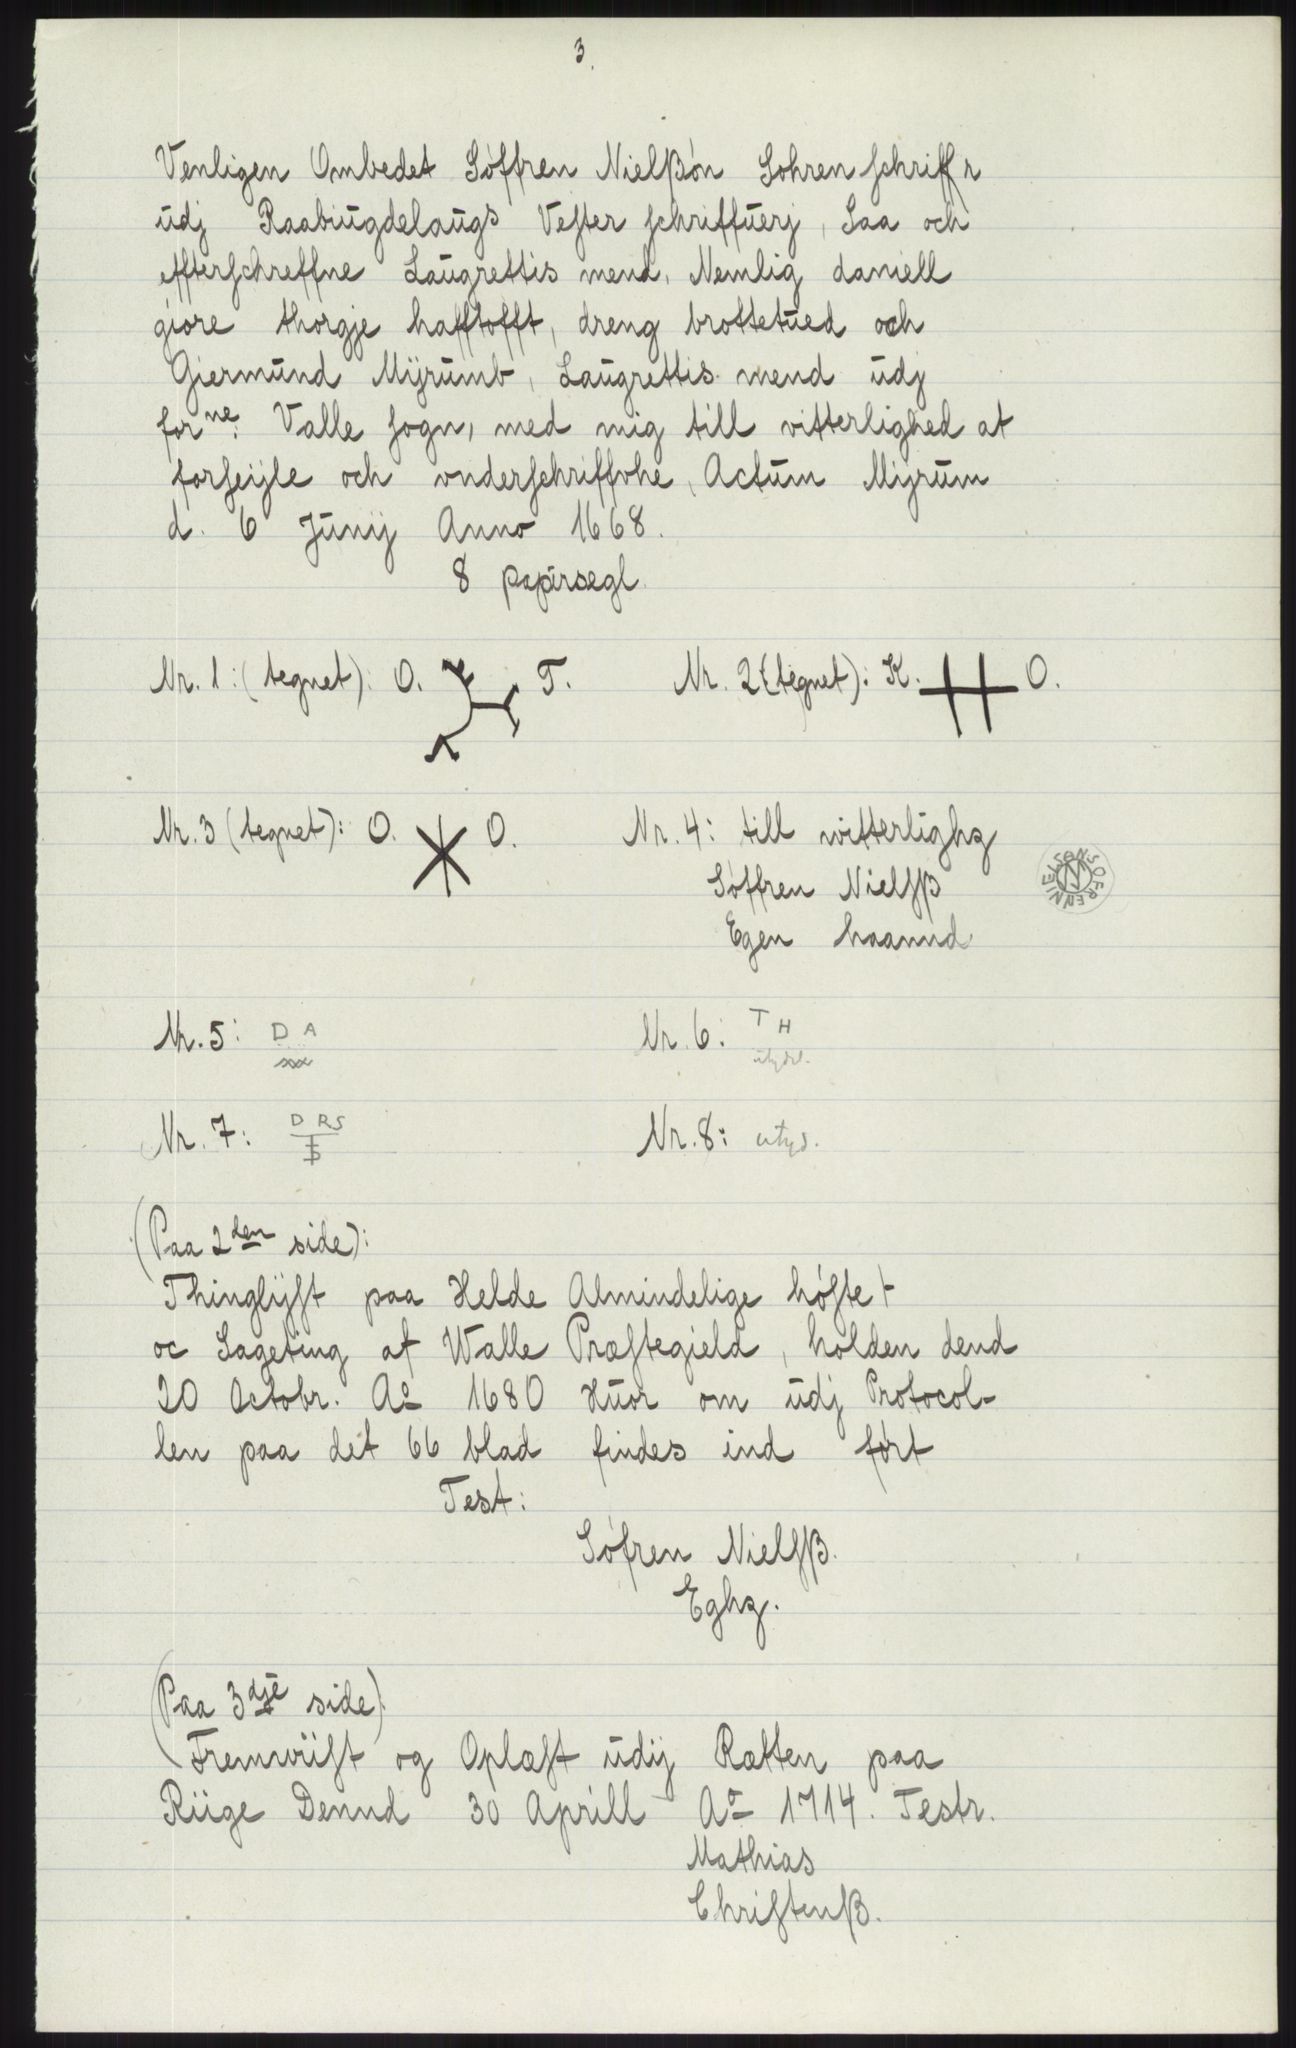 3.
Venligen Ombedet Söffren Nielßön Sohrenschriffr
udj Raabiugdelaugs Vester schriffuerj, Saa och
effterschreffne Laugrettis mend, Nemlig daniell
giöre thorgje hafftofft, dreng brottetued och
Giermund Mÿrumb, Laugrettis mend udj
forne: Valle sogn, med mig till vitterlighed at
forseijle och vnderschriffvhe, Actum Mÿrum
d. 6 Junij Anno 1668.
8 papirsegl.
Nr. 1: (tegnet): O. T. Nr. 2 (tegnet): K. O.
Nr. 3 (tegnet): O. O. Nr. 4: till witterlighz
Söffren Nielsß
Egen haannd
SØFREN NIELSØN
Nr. 5: D A Nr. 6: T H
utydel.
Nr. 7: D RS Nr. 8: utyd.
(Paa 2den side):
Thinglÿst paa Helde Almindelige höste t
oc Sageting af Walle Præstegield, holden dend
20 Octobr. Ao 1680 Huor om udj Protocol-
len paa det 66 blad findes ind fört
Test:
Söfren Nielsß.
Eghz.
(Paa 3dje side)
Fremviist og Oplæst udij Rætten paa
Riige Dennd 30 Aprill Ao 1714. Testr.
Mathias
Christenß.